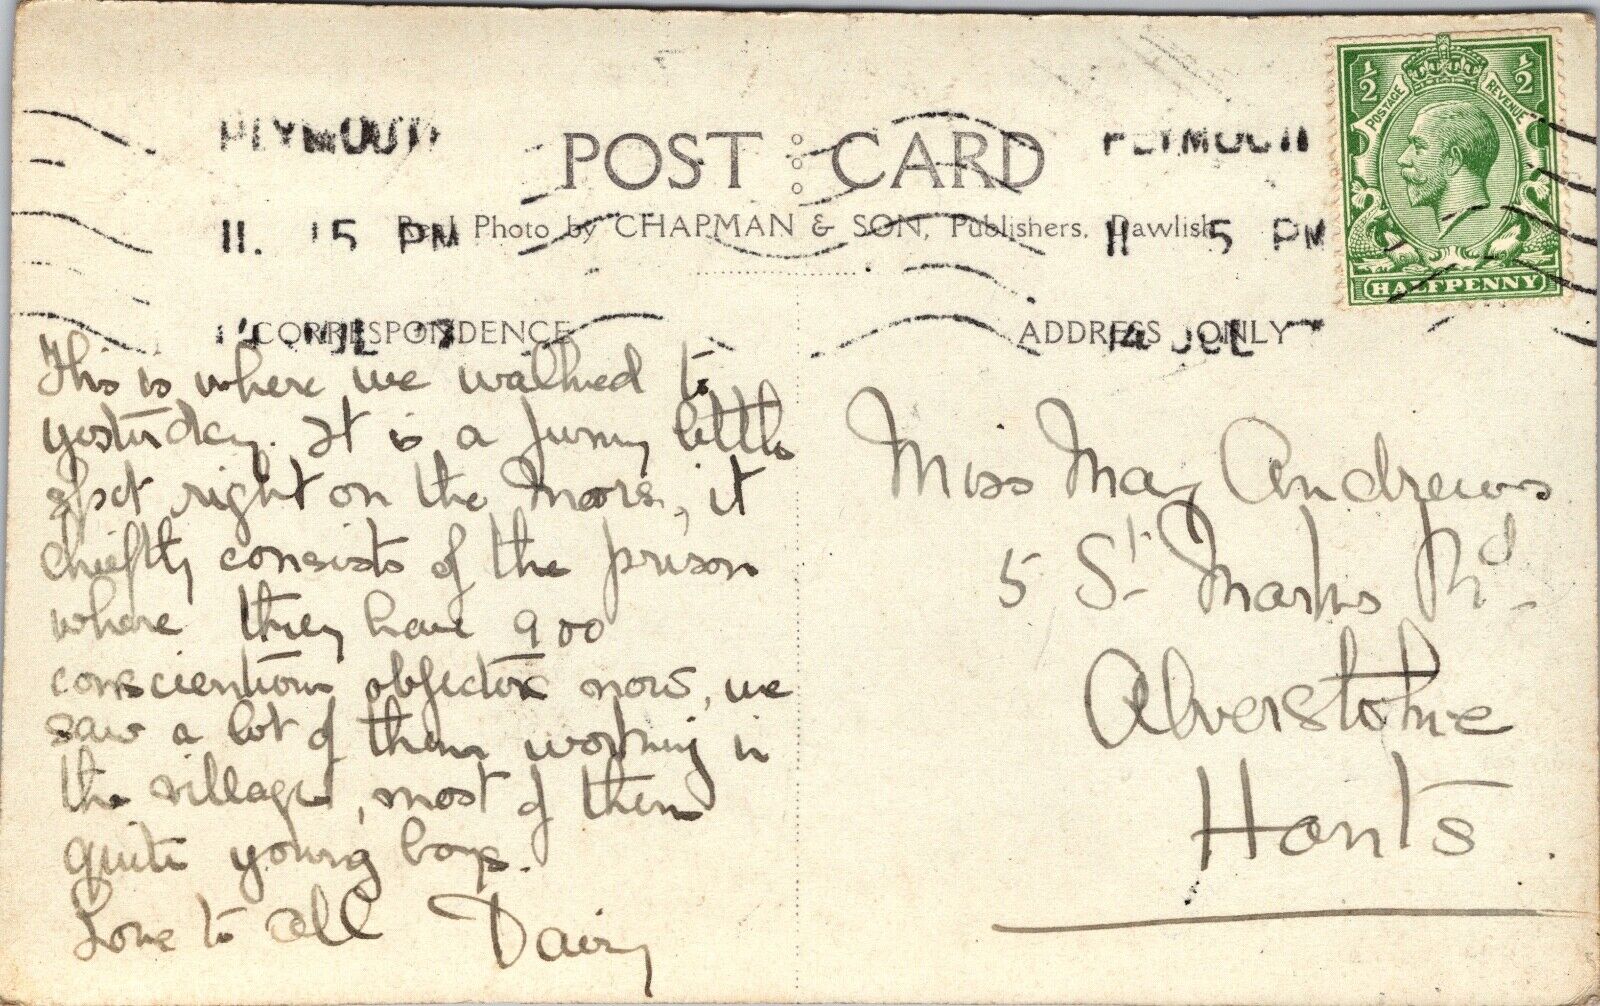 PLYMOUTH
PLYMOUTH
POST CARD
½ ½
POSTAGE REVENUE
HALFPENNY
11. 15 PM
11 5 PM
Real Photo by CHAPMAN & SON, Publishers, Dawlish.
14 JUL
14 JUL
CORRESPONDENCE
ADDRESS ONLY
This is where we walked to
yesterday. It is a funny little
spot right on the Moors, it
chiefly consists of the prison
where they have 900
conscientious objectors now, we
saw a lot of them working in
the village, most of them
quite young boys.
Love to all Daisy
Miss May Andrews
5 St. Marks Rd.
Alverstoke
Hants.